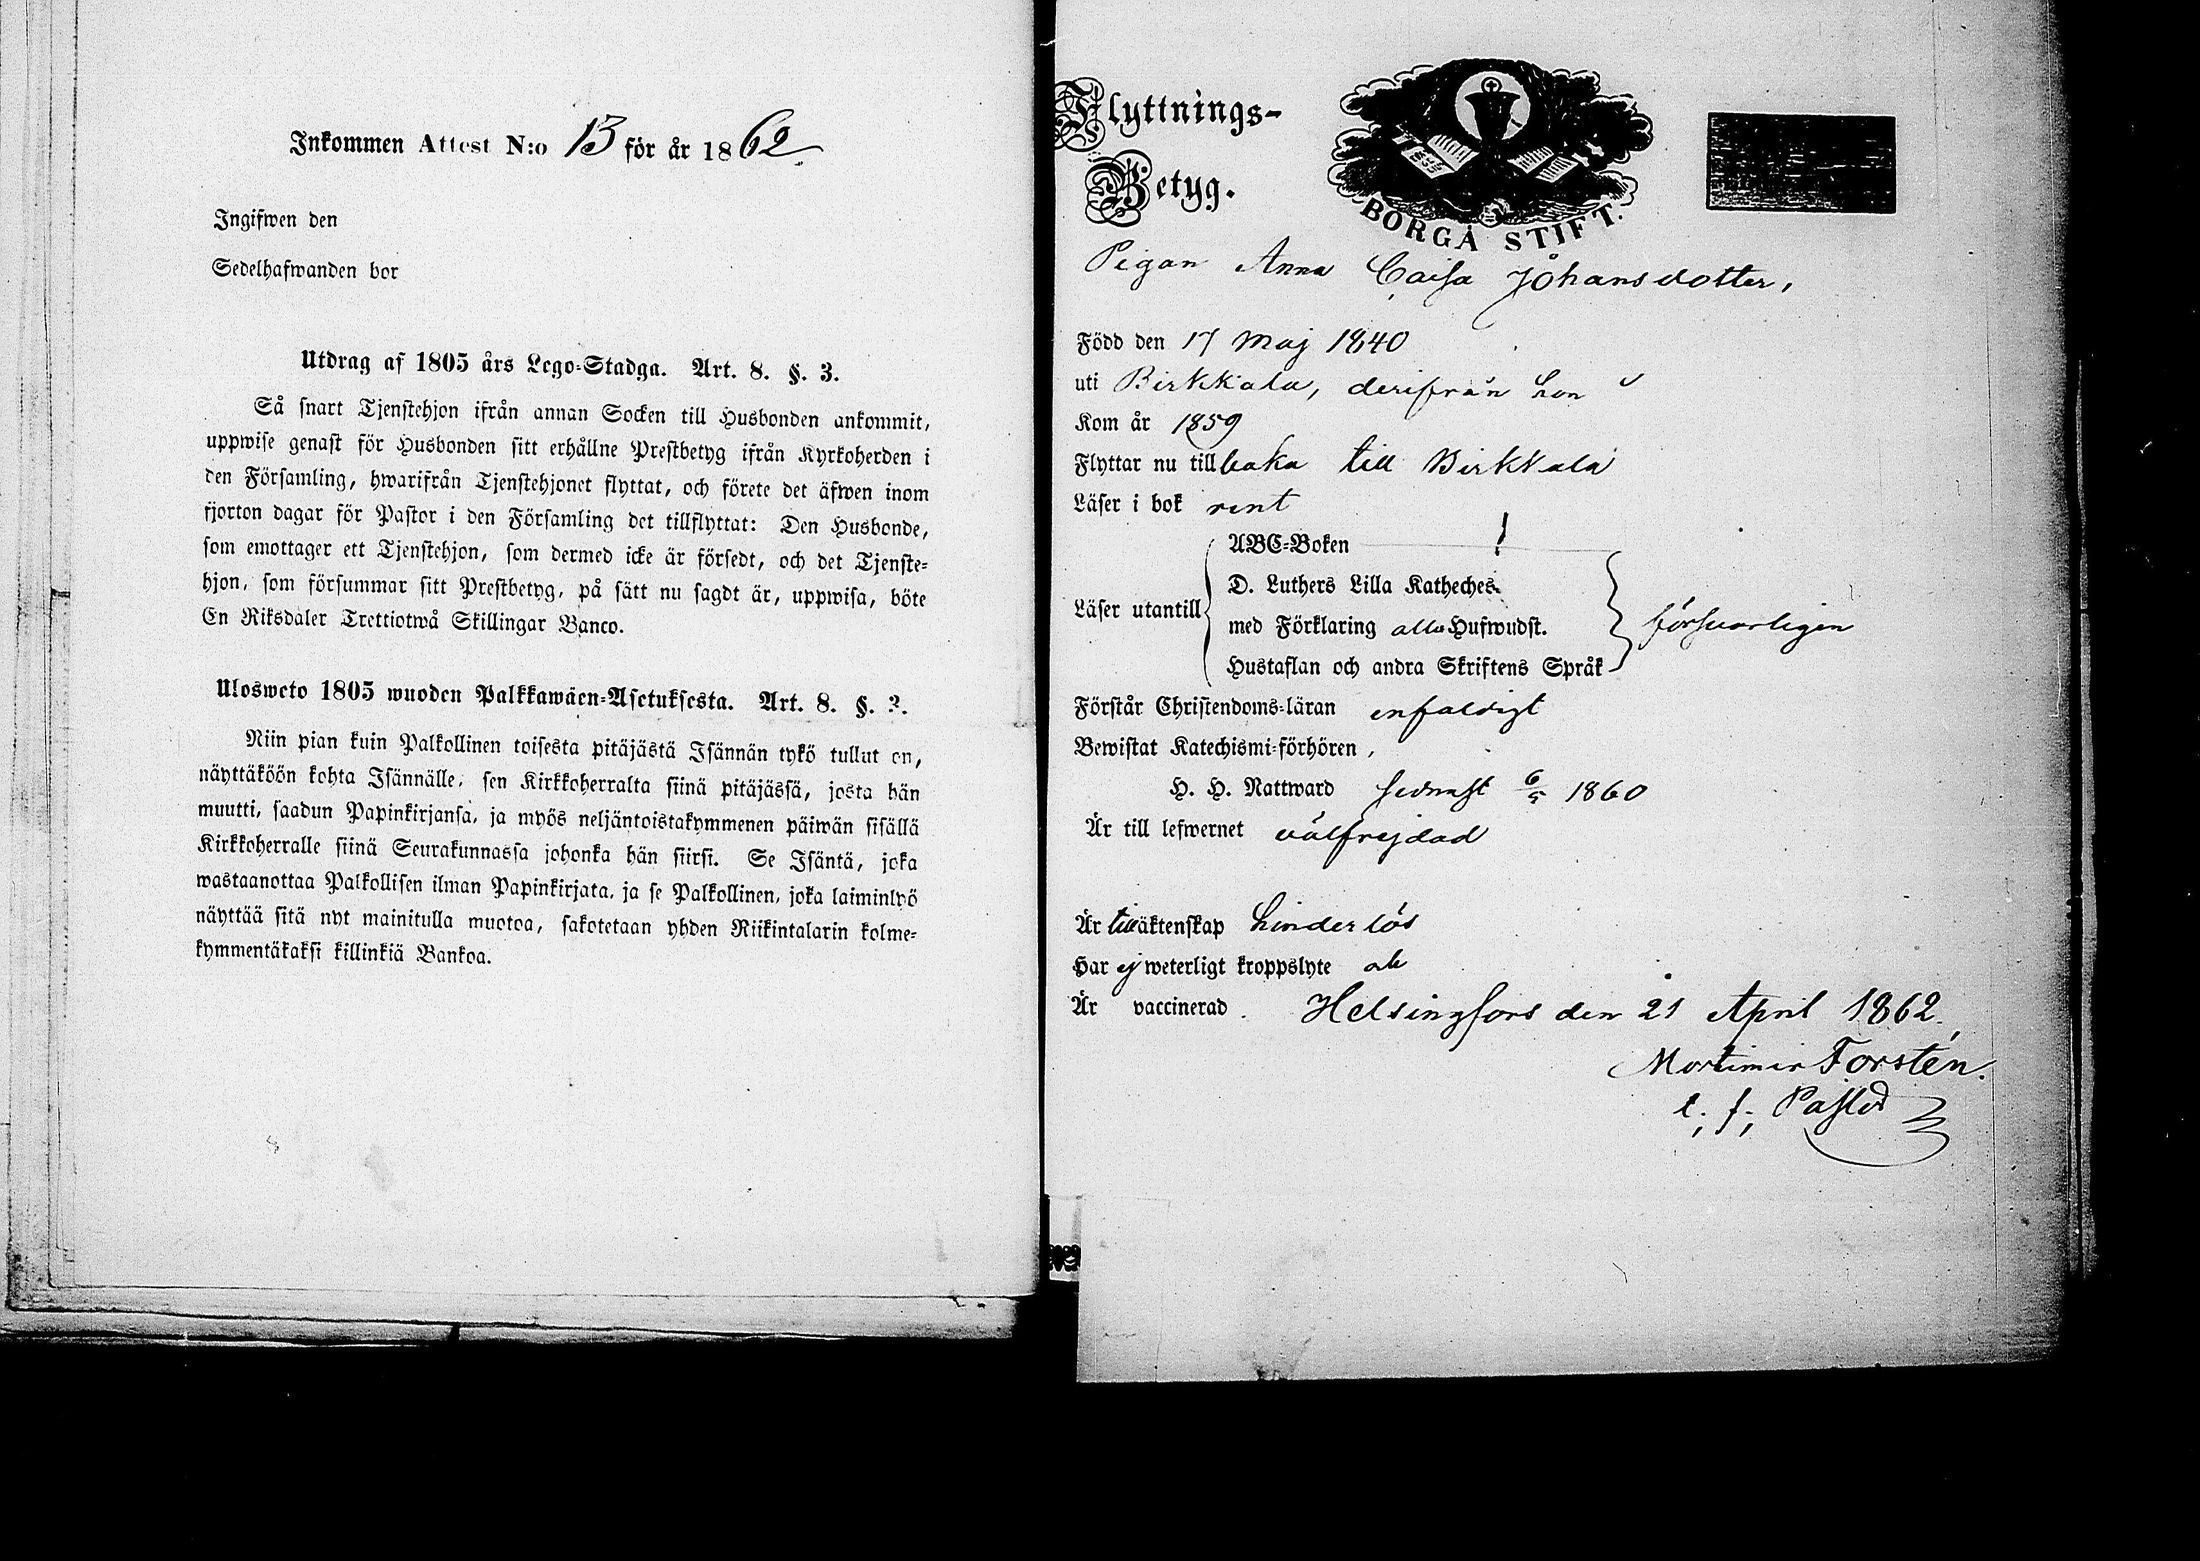 Inkommen Attest N:o 13 för år 1862.
Ingifwen den
Sedelhafwanden bor
Utdrag af 1805 års Lego-Stadga. Art. 8. §. 3.
Så snart Tjenstehjon ifrån annan Socken till Husbonden ankommit,
uppwise genast för Husbonden sitt erhållne Prestbetyg ifrån Kyrkoherden i
den Församling, hwarifrån Tjenstehjonet flyttat, och förete det äfwen inom
fjorton dagar för Pastor i den Församling det tillflyttat: Den Husbonde,
som emottager ett Tjenstehjon, som dermed icke är försedt, och det Tjenste-
hjon, som försummar sitt Prestbetyg, på sätt nu sagdt är, uppwisa, böte
En Riksdaler Trettiotwå Skillingar Banco.
Ulosweto 1805 wuoden Palkkawäen-Asetuksesta. Art. 8. §. 3.
Niin pian kuin Palkollinen toisesta pitäjästä Isännän tykö tullut on,
näyttäköön kohta Isännälle, sen Kirkkoherralta siinä pitäjässä, josta hän
muutti, saadun Papinkirjansa, ja myös neljäntoistakymmenen päiwän sisällä
Kirkkoherralle siinä Seurakunnassa johonka hän siirsi. Se Isäntä, joka
wastaanottaa Palkollisen ilman Papinkirjata, ja se Palkollinen, joka laiminlyö
näyttää sitä nyt mainitulla muotoa, sakotetaan yhden Riikintalarin kolme-
kymmentäkaksi killinkiä Bankoa.
Flyttnings-
Betyg.
BORGÅ STIFT.
Pigan Anna Caisa Johansdotter,
Född den 17 Maj 1840
uti Birkkala, derifrån hon
Kom år 1859
Flyttar nu tillbaka till Birkkala
Läser i bok rent
ABC-Boken
D. Luthers Lilla Kateches.
Läser utantill
med Förklaring alla Hufwudst. försvarligen
Hustaflan och andra Skriftens Språk
Förstår Christendoms-läran enfaldigt
Bewistat Katechismi-förhören,
H. H. Nattward sednast 6/5 1860
Är till lefwernet välfrejdad
Är till äktenskap hinderlös
Har ej weterligt kroppslyte
Är vaccinerad. Helsingfors den 21 April 1862.
Mortimer Forstén.
t. f. Pastor